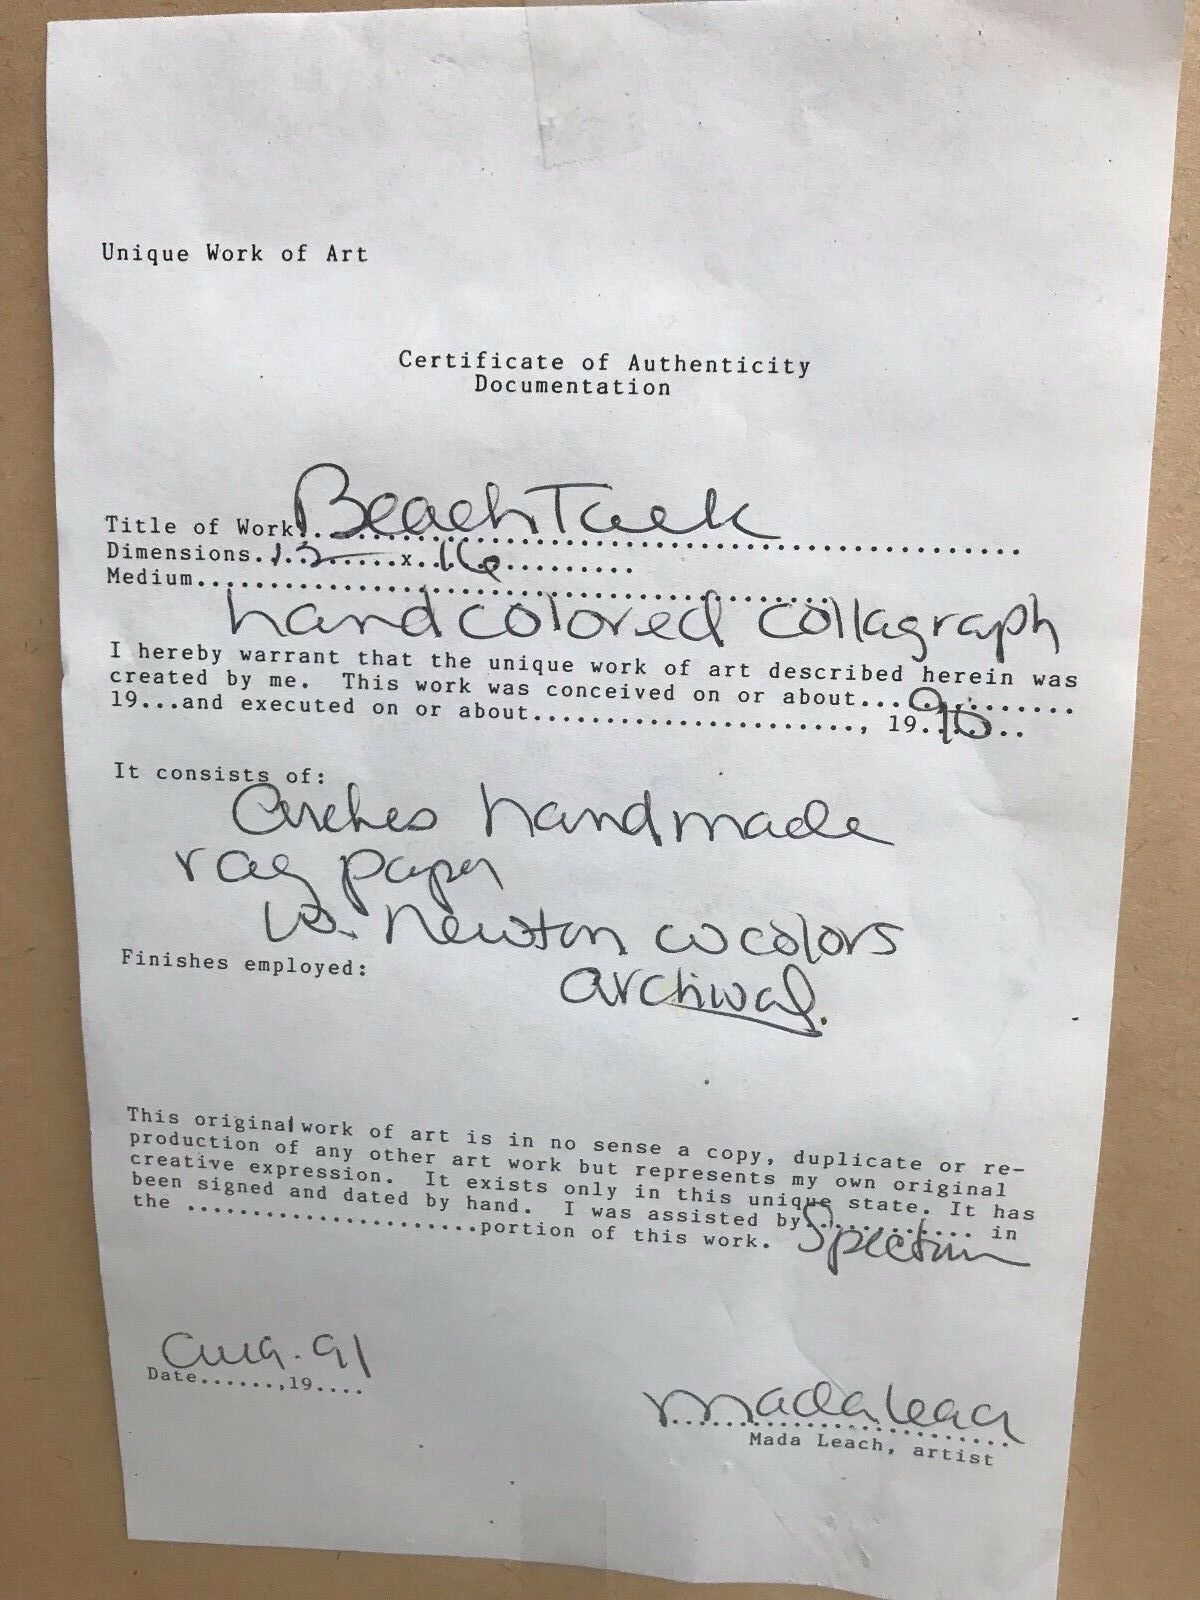 Unique Work of Art
Certificate of Authenticity
Documentation
Title of Work... Beach Talk
Dimensions..12......x..16..........
Medium...............................................
handcolored collagraph
I hereby warrant that the unique work of art described herein was
created by me. This work was conceived on or about............
19...and executed on or about......................., 19..90..
It consists of:
Arches handmade
rag paper
W. Newton w colors
Finishes employed:
archival.
This original work of art is in no sense a copy, duplicate or re-
production of any other art work but represents my own original
creative expression. It exists only in this unique state. It has
been signed and dated by hand. I was assisted by............ in
the ......................portion of this work. Spectrum
Aug. 91
Date......,19....
Mada Leach
Mada Leach, artist